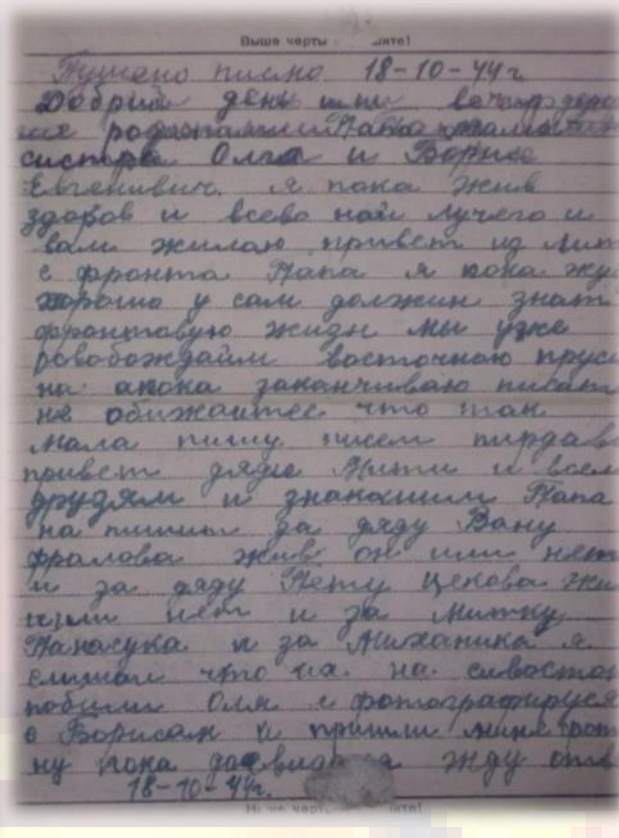 Выше черты
Пущено писмо 18-10-44 г
Добрий день или вечар доро
гие родители Папа мама
систора Олга и Борис
Евгенивич. я пока жив
здоров и всево най лучего и
вам жилаю привет из Лит
с фронта Папа я пока жу
хорошо у сам должин знат
фронтавую жизн мы уже
восточною прус
на апока заканчиваю писат
не обижайтес что так
мала пишу писем пирдав
привет дяде Мити и всем
друзям и знакамим Папа
на пишы за дяду Вану
фралова жив он или нет
и за дяду Пету Цекова жи
или нет и за Митку
Панасука и за Миханика я
слишал что на сивостоп
побили Оля с фотографируся
с Борисам и пришли мине фот
ну пока жду отв
18-10-44г.
Ниже черты